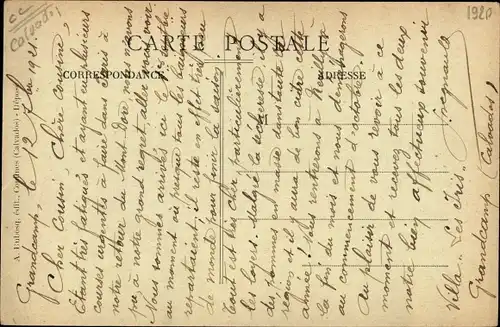 CC
Calvados
1920
CARTE POSTALE
CORRESPONDANCE
ADRESSE
A. Dubosq, édit., (Calvados) - Déposé
Grandcamp, le 12 7bre 1921.
Cher Cousin, Chère Cousine,
Etant très fatigués et ayant eu plusieurs
courses urgentes à faire dans Paris à
notre retour du Mont-Dore nous n'avons
pu à notre grand regret aller vous voir
Nous sommes arrivés ici le 1er septembre
au moment où presque tous les baigneurs
repartaient, il reste en effet très peu
de monde pour finir la saison.
Tout est très cher particulièrement
les loyers. Malgré la sécheresse il y a
des pommes en masse dans toute la
région et il y aura de bon cidre cette
année, nous rentrerons à Neuilly à
la fin du mois et nous déménagerons
au commencement d'octobre.
Au plaisir de vous revoir à ce
moment et recevez tous les deux
notre bien affectueux souvenir
Villa "Les Iris"
Grandcamp (Calvados)